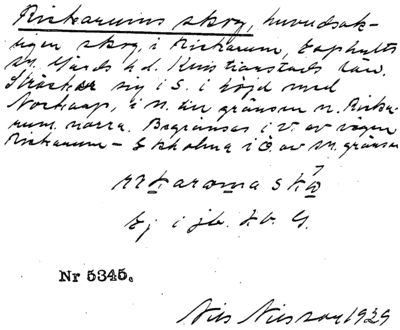 Rickarums skog, huvudsak-
ligen skog, i Rickarum, Äsphults
sn. Gärds hd. Kristianstads län.
Sträcker sig i S. i höjd med
Norkaap, i N. till gränsen n. Ricka-
rum norra. Begränsas i V. av vägen
Rickarum – Ekholma i Ö. av sn.gränsen
Ej i jb. l. G.
Nr 5345.
Nils Nilsson 1929